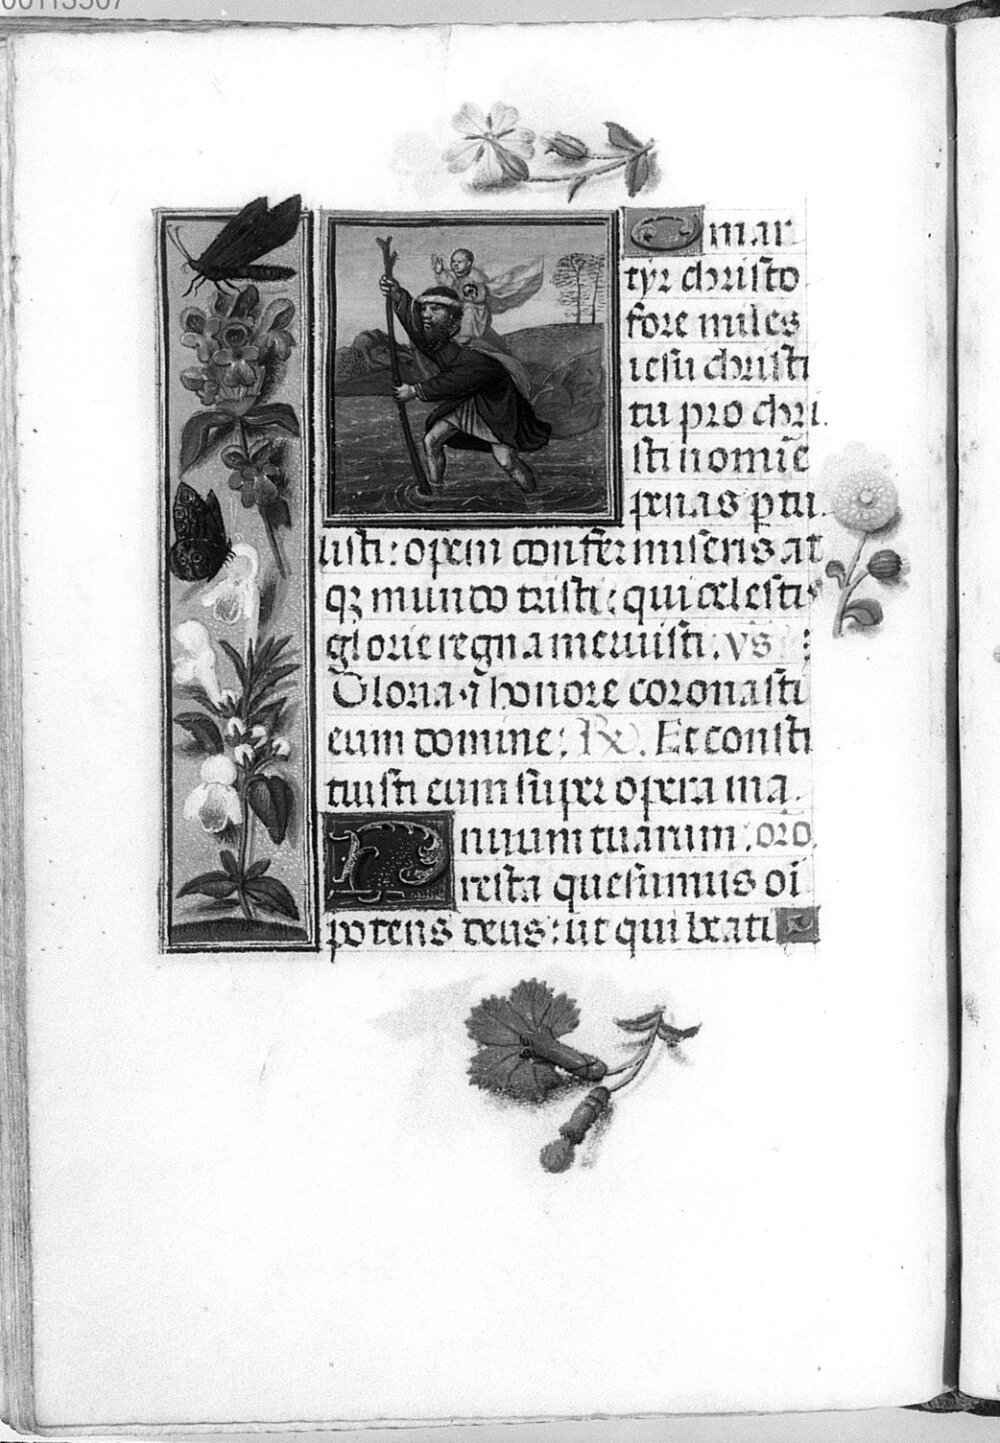 O mar
tyr christo
fore miles
iesu christi
tu pro chri
sti nomīe
penas ꝑtu
listi: opem confer miseris at
qꝫ mundo tristi: qui celestis
glorie regna meruisti. vs
Gloria ⁊ honore coronasti
eum domine: R̷. Et consti
tuisti eum super opera ma
nuum tuarum. oro.
Presta quesumus oī
potens deus: ut qui beati